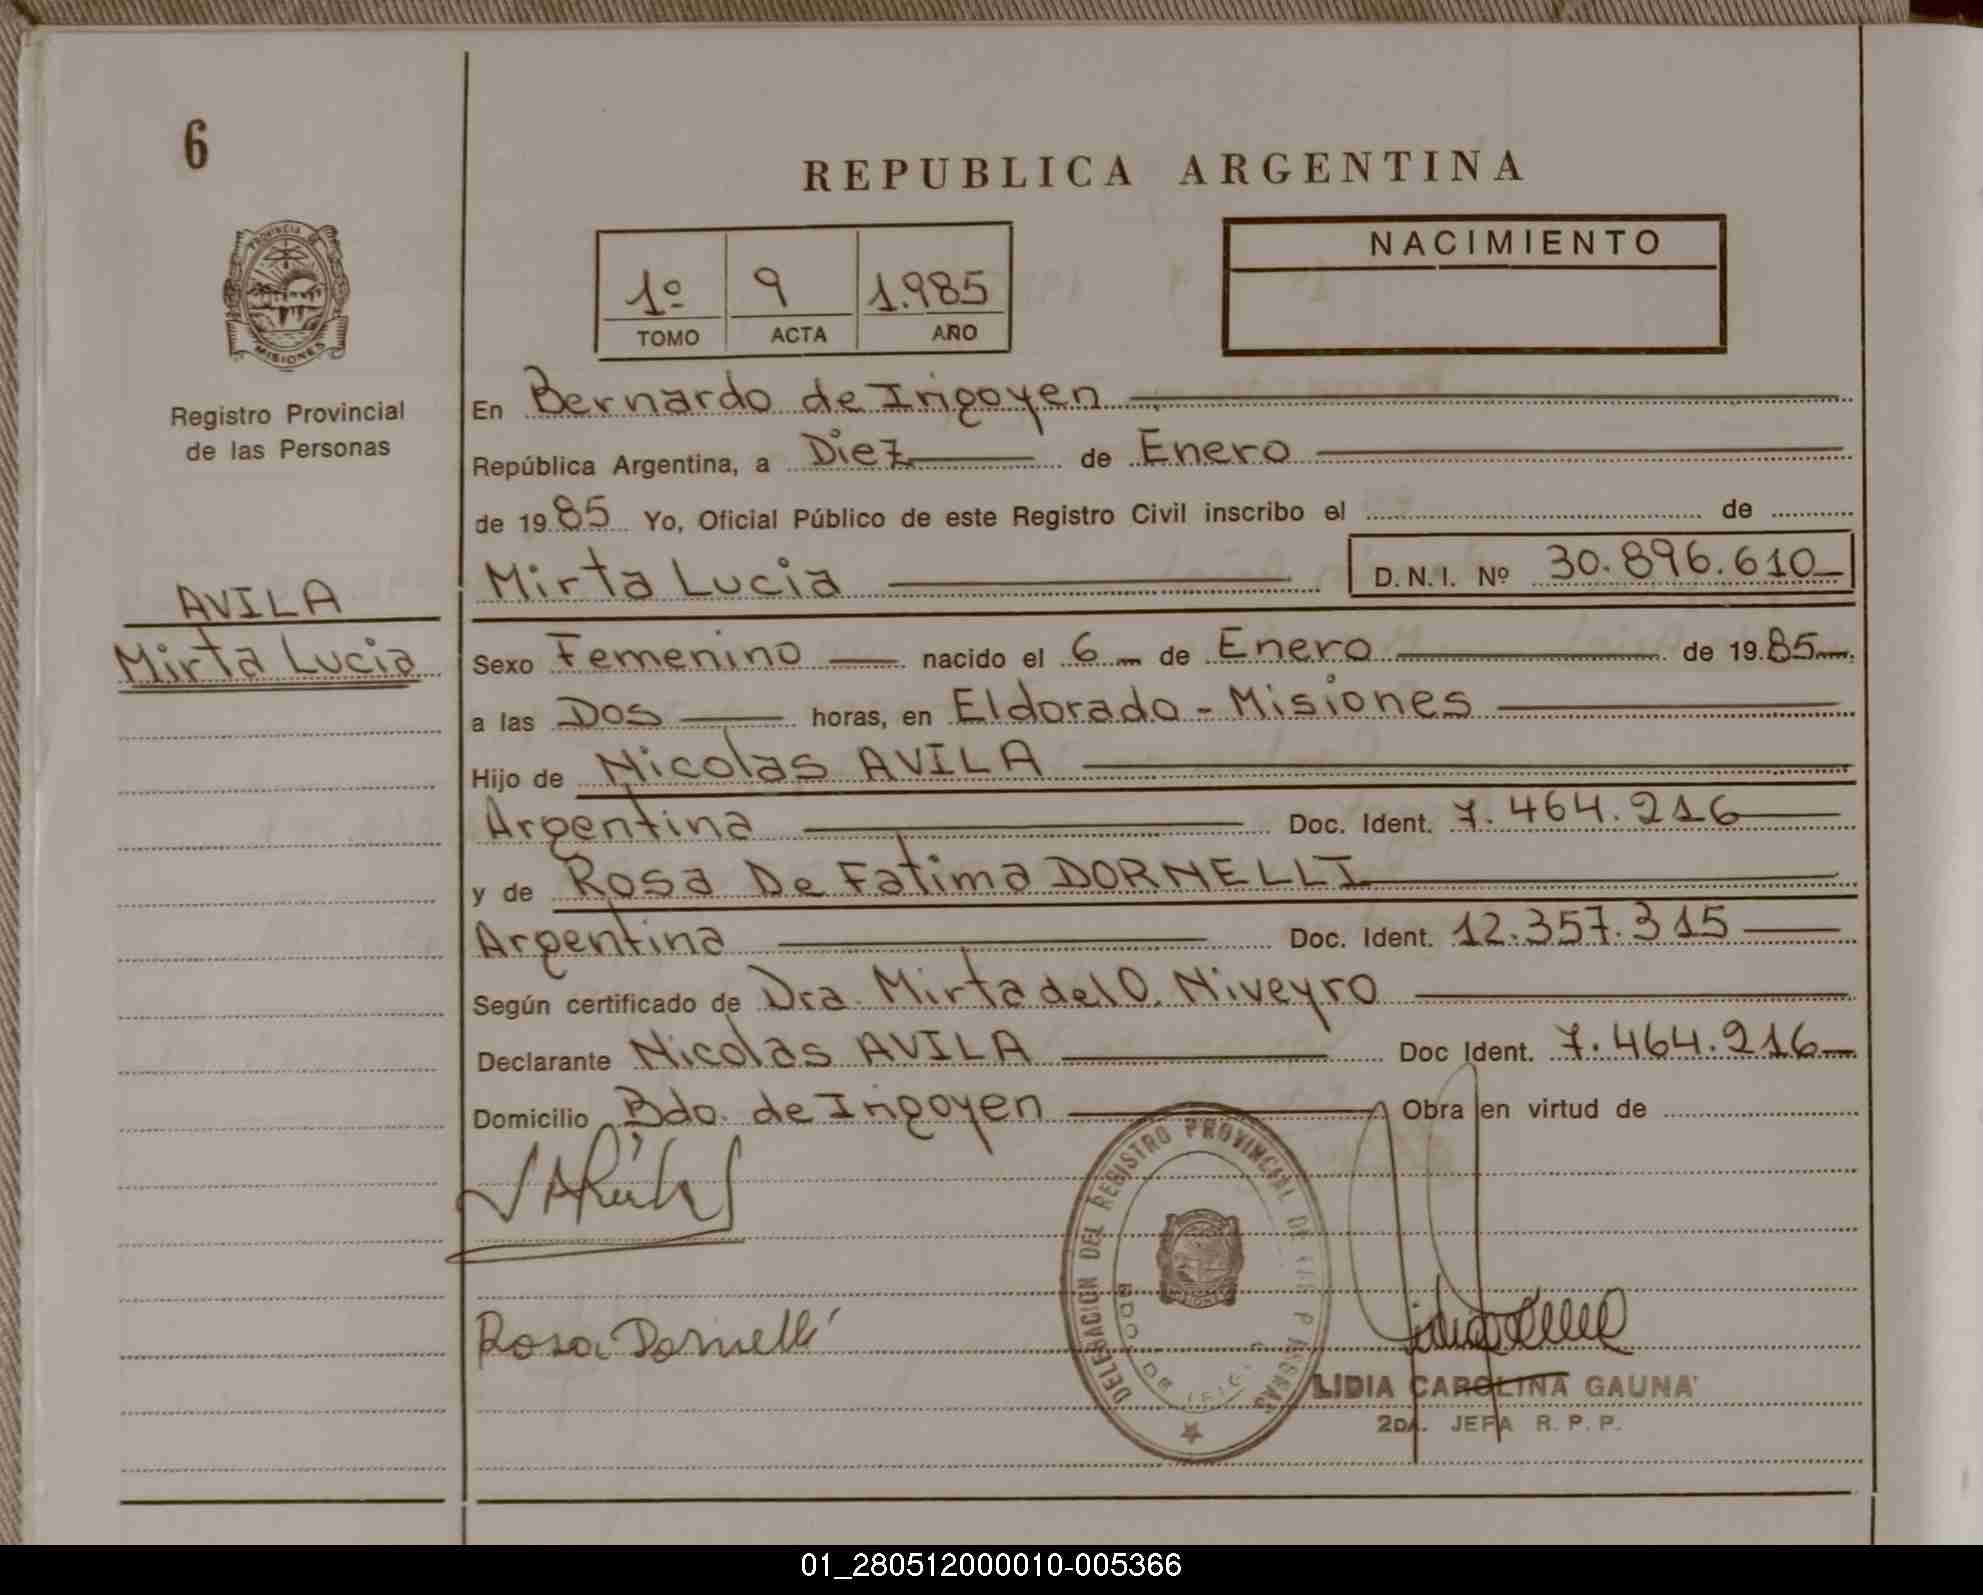 6
REPUBLICA ARGENTINA
PROVINCIA DE
MISIONES
Registro Provincial
de las Personas
1º 9 1.985
TOMO ACTA AÑO
NACIMIENTO
En Bernardo de Irigoyen
República Argentina, a Diez de Enero
de 19 85 Yo, Oficial Público de este Registro Civil inscribo el de
Mirta Lucia D.N.I. Nº 30.896.610
AVILA
Mirta Lucia
Sexo Femenino nacido el 6 de Enero de 19 85
a las Dos horas, en Eldorado - Misiones
Hijo de Nicolas AVILA
Argentina Doc. Ident. 7.464.216
y de Rosa De Fatima DORNELLI
Argentina Doc. Ident. 12.357.315
Según certificado de Dra. Mirta del O. Niveyro
Declarante Nicolas AVILA Doc Ident. 7.464.216
Domicilio Bdo. de Irigoyen Obra en virtud de
DELEGACION DEL REGISTRO PROVINCIAL DE
BDO. DE
Rosa Dornelli
LIDIA CAROLINA GAUNA
2DA. JEFA R.P.P.
01_280512000010-005366